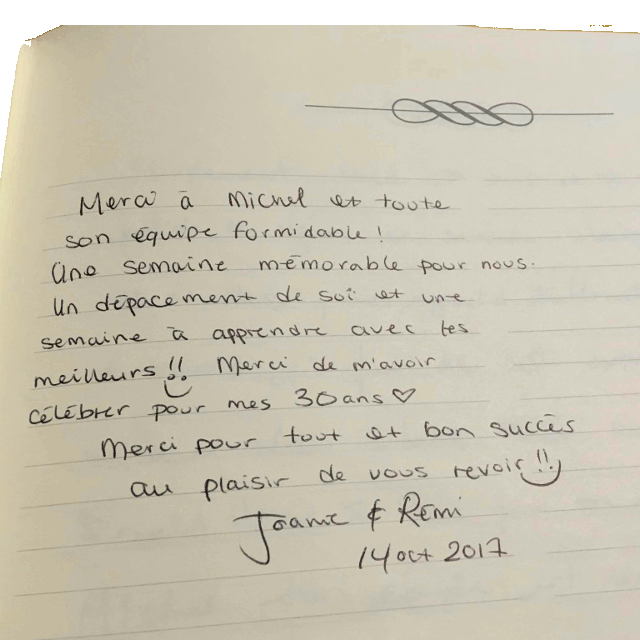 Merci à Michel et toute
son équipe formidable!
Une semaine mémorable pour nous.
Un dépacement de soi et une
semaine à apprendre avec les
meilleurs!! Merci de m'avoir
célébrer pour mes 30 ans ♡
Merci pour tout et bon succès
au plaisir de vous revoir!!
Joanie & Rémi
14 oct 2017